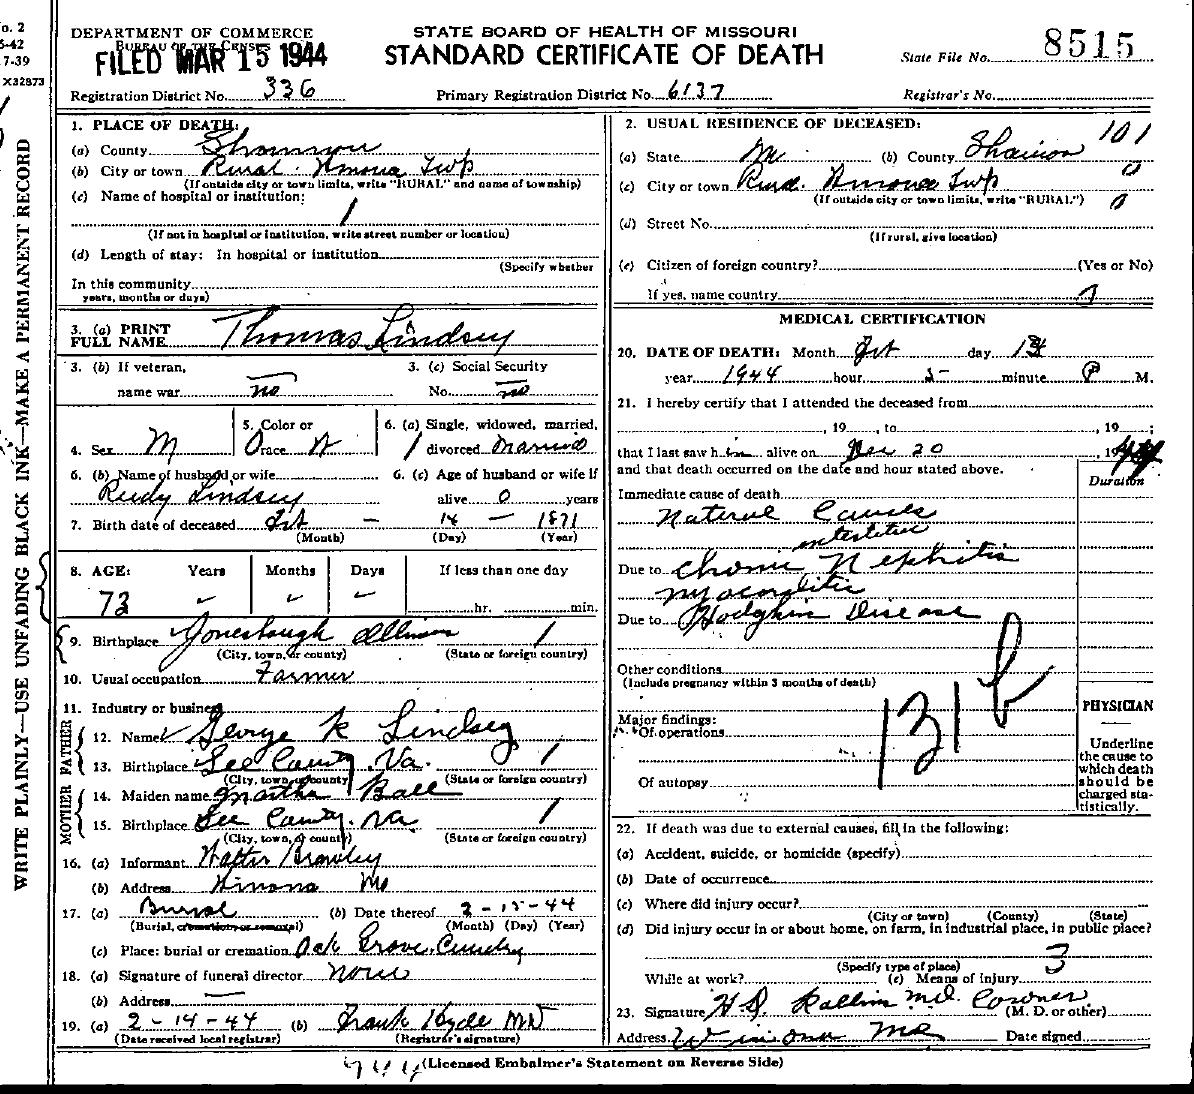 o. 2
5-42
7-39
X32873
WRITE PLAINLY—USE UNFADING BLACK INK—MAKE A PERMANENT RECORD
DEPARTMENT OF COMMERCE
BUREAU OF THE CENSUS
FILED MAR 15 1944
STATE BOARD OF HEALTH OF MISSOURI
STANDARD CERTIFICATE OF DEATH
State File No. 8515
Registration District No. 336
Primary Registration District No. 6137
Registrar's No.
1. PLACE OF DEATH:
(a) County Shannon
(b) City or town Rural Winona Twp
(If outside city or town limits, write "RURAL" and name of township)
(c) Name of hospital or institution:
(If not in hospital or institution, write street number or location)
(d) Length of stay: In hospital or institution
(Specify whether
In this community
years, months or days)
3. (a) PRINT FULL NAME Thomas Lindsey
3. (b) If veteran, name war no
3. (c) Social Security No. no
4. Sex M
5. Color or race W
6. (a) Single, widowed, married, divorced Married
6. (b) Name of husband or wife Rudy Lindsey
6. (c) Age of husband or wife if alive 0 years
7. Birth date of deceased 14 1871
(Month) (Day) (Year)
8. AGE: Years Months Days If less than one day
73 hr. min.
9. Birthplace Jonesbough Illinois
(City, town, or county) (State or foreign country)
10. Usual occupation Farmer
11. Industry or business
FATHER
12. Name George K Lindsey
13. Birthplace Lee County, Va.
(City, town, or county) (State or foreign country)
MOTHER
14. Maiden name Martha Ball
15. Birthplace Lee County, Va
(City, town, or county) (State or foreign country)
16. (a) Informant Walter Brawley
(b) Address Winona Mo
17. (a) Burial (b) Date thereof 2-15-44
(Burial, cremation or removal) (Month) (Day) (Year)
(c) Place: burial or cremation Oak Grove Cemetery
18. (a) Signature of funeral director none
(b) Address
19. (a) 2-14-44 (b) Frank Hyde MD
(Date received local registrar) (Registrar's signature)
2. USUAL RESIDENCE OF DECEASED: 101
(a) State Mo (b) County Shannon
(c) City or town Rural Winona Twp
(If outside city or town limits, write "RURAL")
(d) Street No.
(If rural, give location)
(e) Citizen of foreign country? (Yes or No)
If yes, name country
MEDICAL CERTIFICATION
20. DATE OF DEATH: Month day
year 1944 hour 5 minute P M.
21. I hereby certify that I attended the deceased from
, 19 , to , 19 ;
that I last saw him alive on Dec 20, 19
and that death occurred on the date and hour stated above.
Duration
Immediate cause of death
Natural Causes
interstitial
Due to Chronic Nephritis
myocarditis
Due to Hodgkin Disease
Other conditions
(Include pregnancy within 3 months of death)
131 b
Major findings:
Of operations
Of autopsy
PHYSICIAN
Underline the cause to which death should be charged statistically.
22. If death was due to external causes, fill in the following:
(a) Accident, suicide, or homicide (specify)
(b) Date of occurrence
(c) Where did injury occur?
(City or town) (County) (State)
(d) Did injury occur in or about home, on farm, in industrial place, in public place?
(Specify type of place)
While at work? (e) Means of injury 3
23. Signature Rollins M.D. Coroner
(M. D. or other)
Address Winona Mo Date signed
(Licensed Embalmer's Statement on Reverse Side)